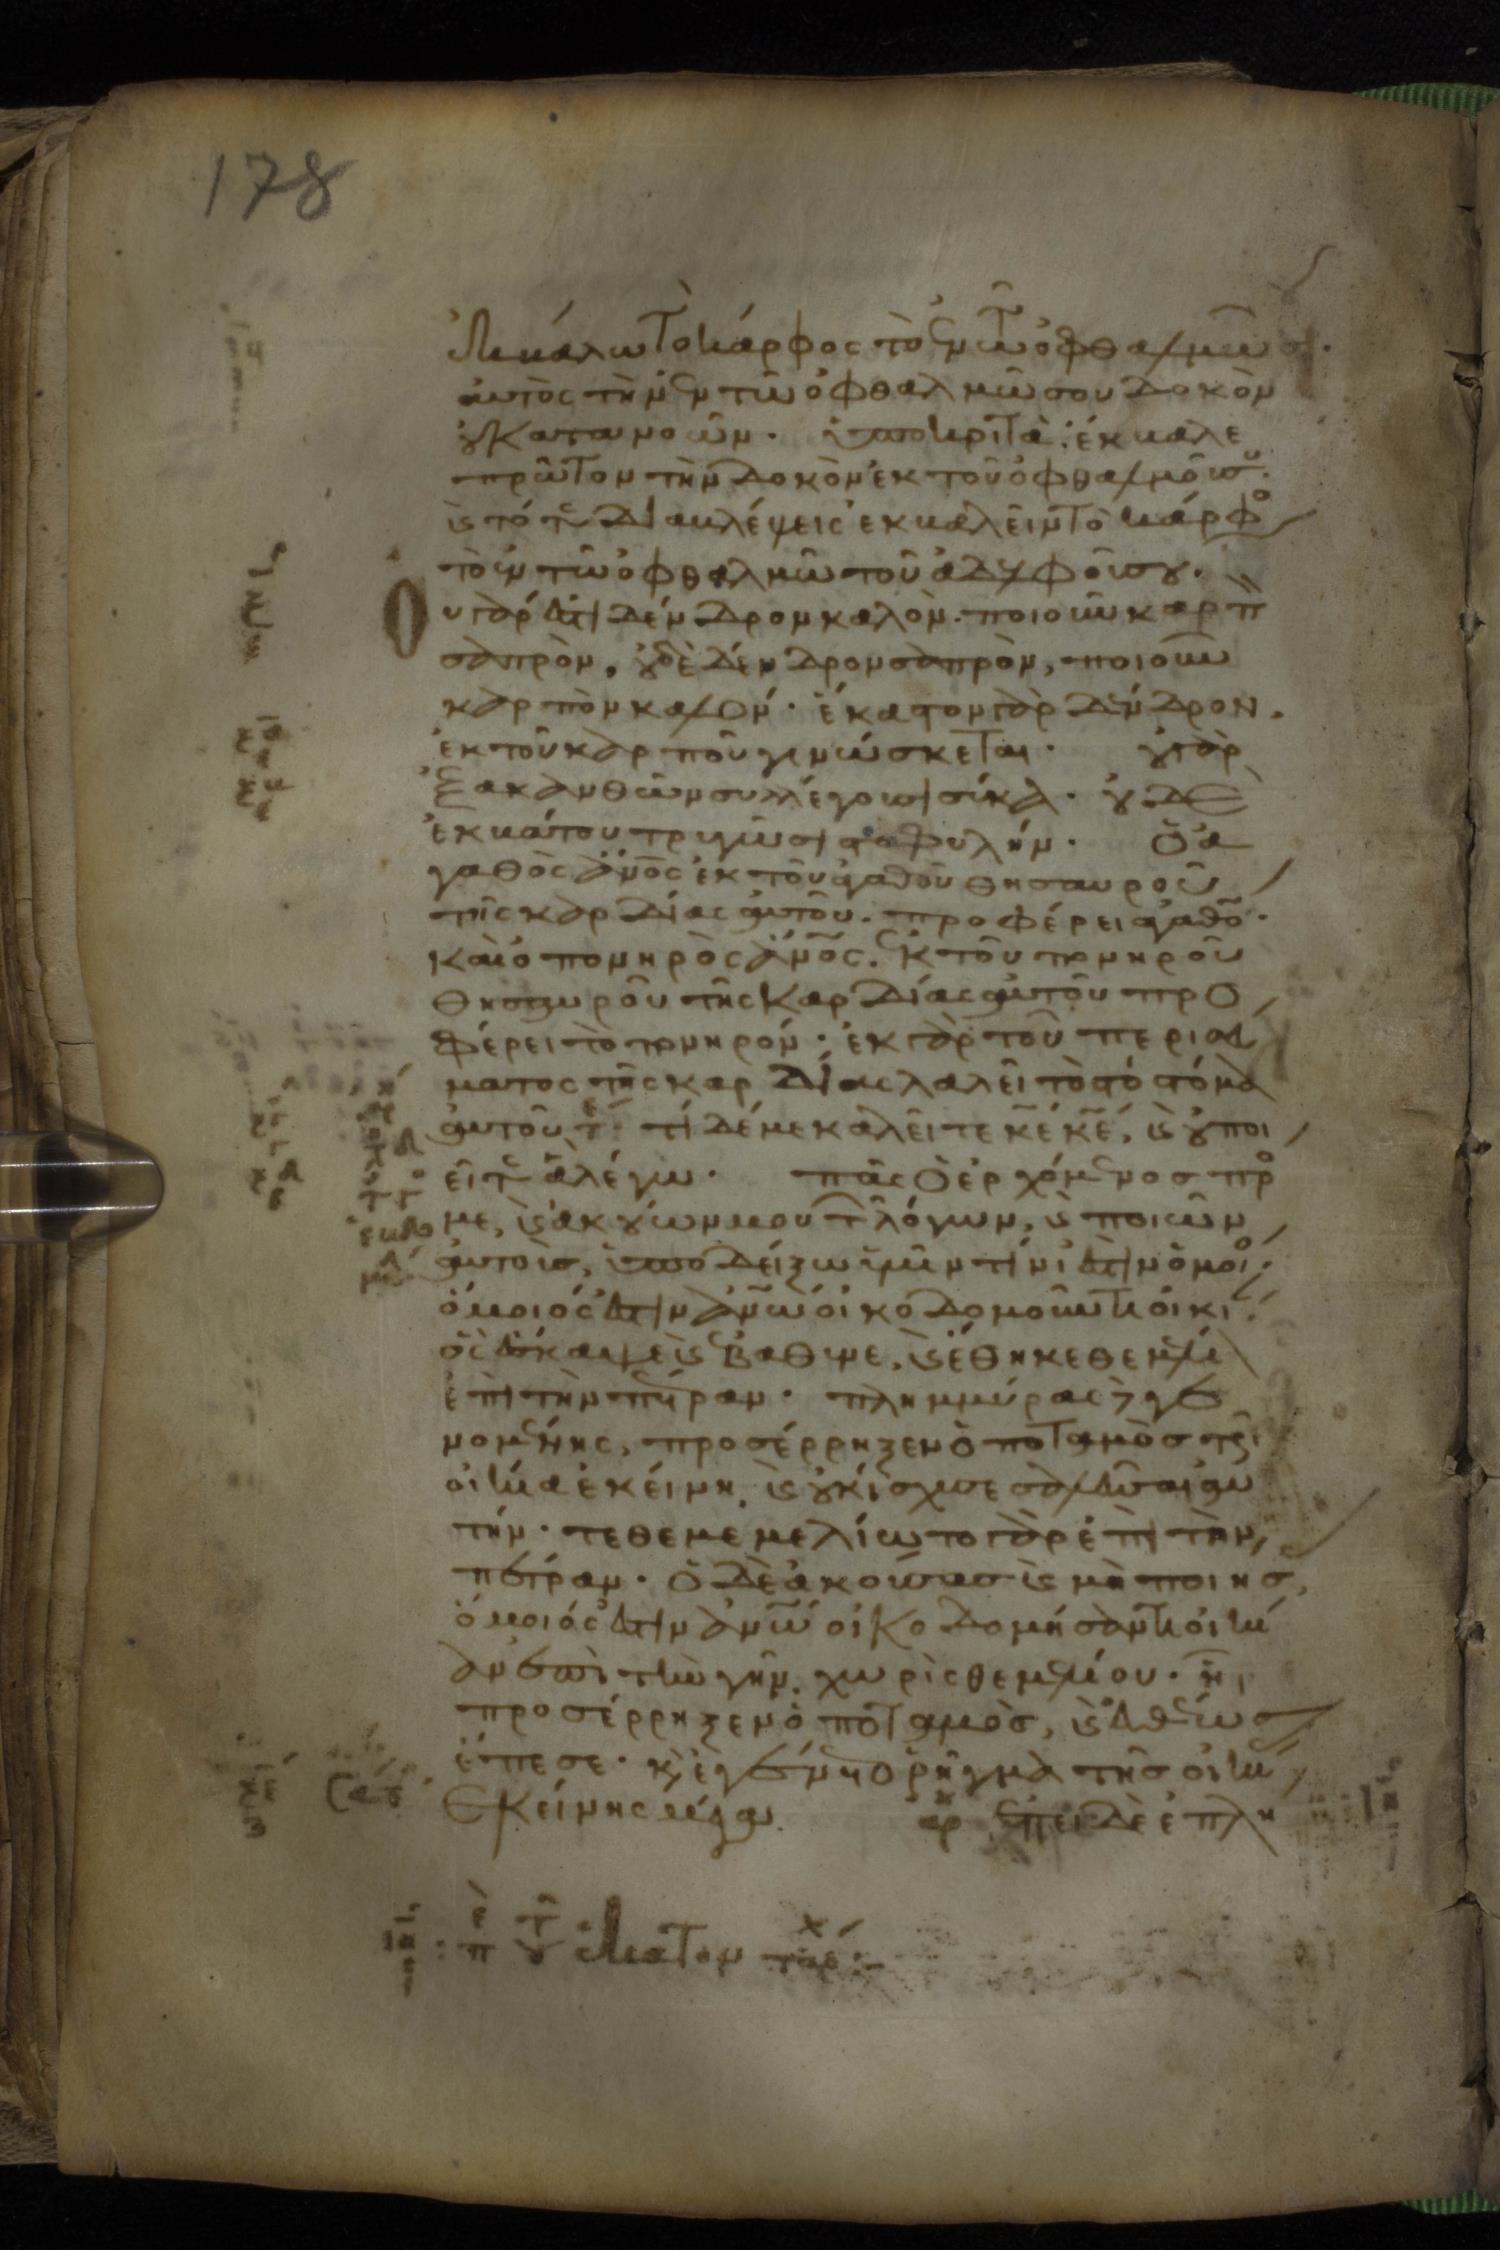 178
ἐκβάλω τὸ κάρφος τὸ ἐν τῶ ὀφθαλμῶ σου·
αὐτὸς τὴν ἐν τῶ ὀφθαλμῶ σου δοκὸν
οὐ κατανοῶν· ὑποκριτὰ· ἔκβαλε
πρῶτον τὴν δοκὸν ἐκ τοῦ ὀφθαλμοῦ σου·
καὶ τότε διαβλέψεις ἐκβαλεῖν τὸ κάρφος
τὸ ἐν τῶ ὀφθαλμῶ τοῦ ἀδελφοῦ σου·
Ου γάρ ἐστι δένδρον καλὸν· ποιοῦν καρπὸν
σαπρὸν, οὐδὲ δένδρον σαπρὸν, ποιοῦν
καρπὸν καλόν· ἕκαστον γὰρ δένδρον
ἐκ τοῦ καρποῦ γινώσκεται· οὐ γὰρ
ἐξ ακανθῶν συλλέγουσι σύκα· οὐδὲ
ἐκ βάτου τρυγῶσι σταφυλήν· Ὁ ἀ
γαθὸς ἄνος ἐκ τοῦ ἀγαθοῦ θησαυροῦ
τῆς καρδίας αὐτοῦ· προφέρει ἀγαθὸν·
καὶ ὁ πονηρὸς ἄνος· ἐκ τοῦ πονηροῦ
θησαυροῦ τῆς καρδίας αὐτοῦ προ
φέρει τὸ πονηρόν· ἐκ γὰρ τοῦ περισσεύ
ματος τῆς καρδίας λαλεῖ τὸ στόμα
αὐτοῦ τε τί δέ με καλεῖτε κε κε, καὶ οὐ ποι
εῖτε ἃ λέγω· πᾶς ὁ ἐρχόμενος πρός
με, καὶ ἀκούων μου τῶν λόγων, καὶ ποιῶν
αὐτοὺς, ὑποδείξω ὑμῖν τίνι ἐστὶν ὅμοιος·
ὅμοιός ἐστιν ἀνω οἰκοδομοῦντι οἰκίαν·
ὃς ἔσκαψε καὶ ἐβάθυνε, καὶ ἔθηκε θεμέλιον
ἐπὶ τὴν πέτραν· πλημμύρας δὲ γε
νομένης, προσέρρηξεν ὁ ποταμὸς τῆ
οἰκία ἐκείνη, καὶ οὐκ ἴσχυσε σαλεῦσαι αὐ
τήν· τεθεμελίωτο γὰρ ἐπὶ τὴν
πέτραν· ὁ δὲ ἀκούσας καὶ μὴ ποιήσας,
ὅμοιός ἐστιν ἀνω οἰκοδομήσαντι οἰκί
αν ἐπὶ τὴν γῆν, χωρὶς θεμελίου· ἧ
προσέρρηξεν ὁ ποταμὸς, καὶ εὐθέως
ἔπεσε· καὶ ἐγένετο τὸ ῥῆγμα τῆς οἰκίας
Ἐκείνης μέγα αρχ ἐπεὶ δὲ ἐπλη
ἕκαστον